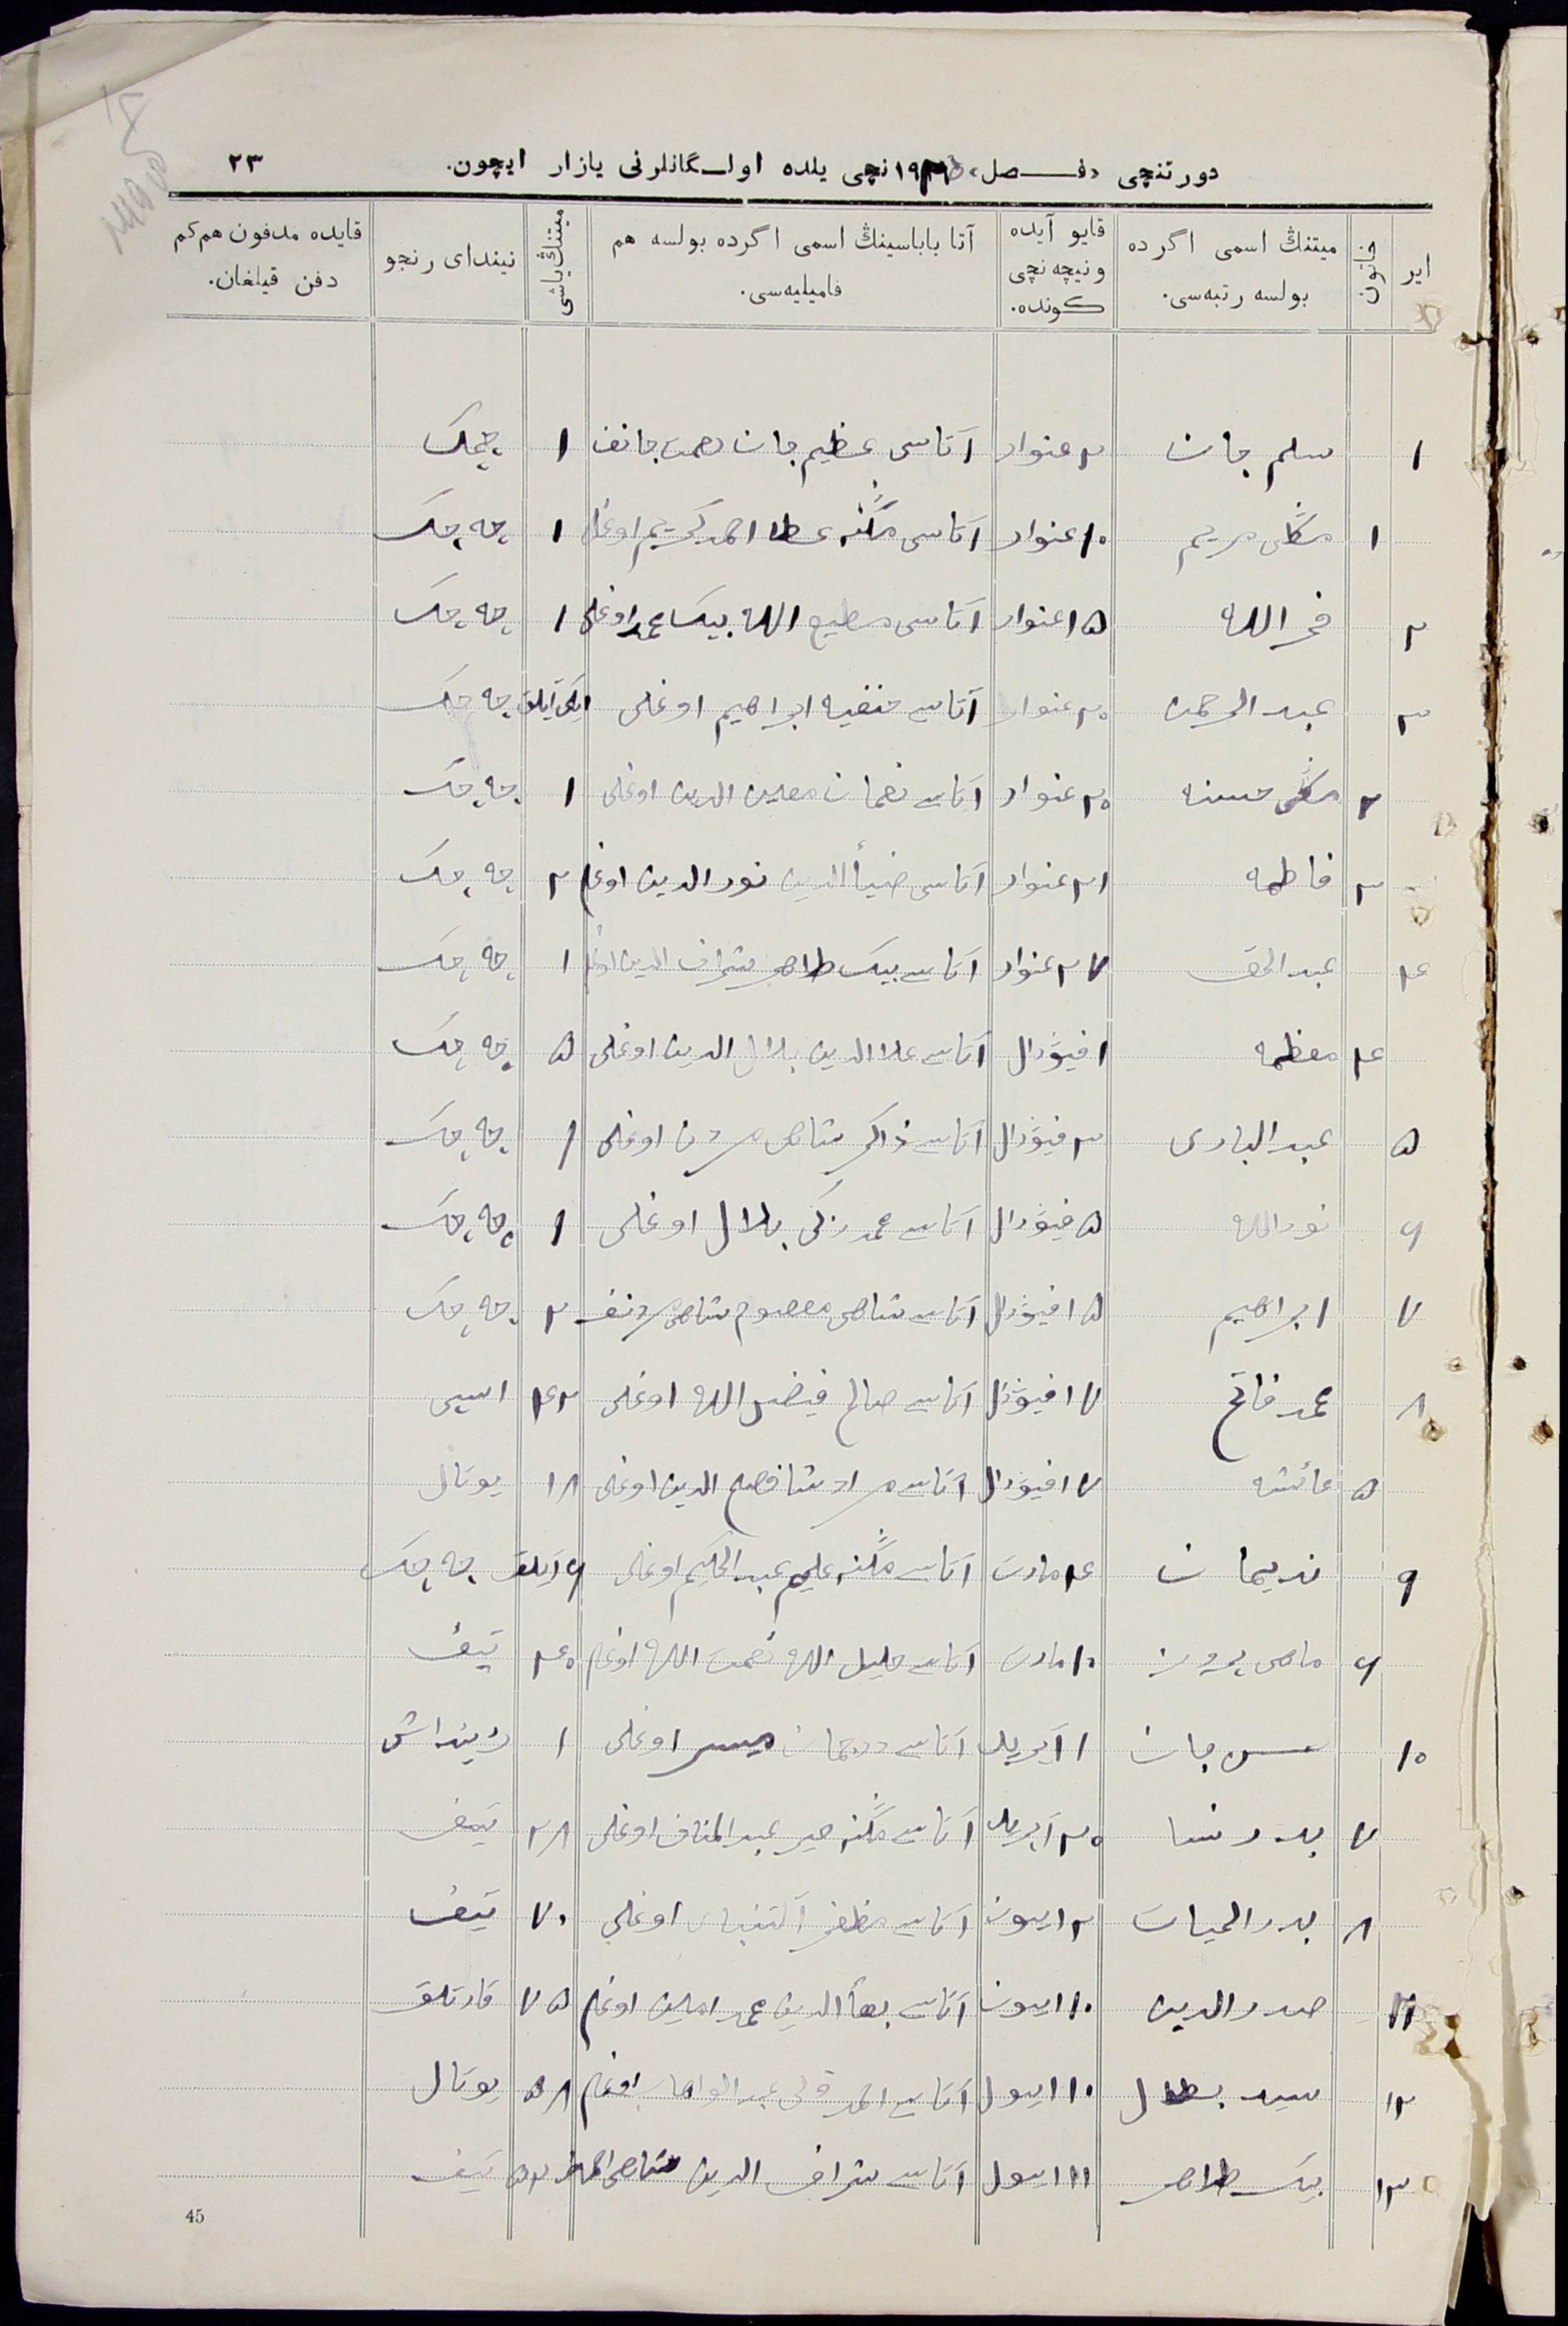 دورتنچی «فـصل» ۱۹۲۳ نچی یلده اولـگانلرنی یازار ایچون. ۲۳
ایر خاتون میتنڭ اسمی اگرده بولسه رتبه‌سی. قایو آیده ونیچه نچی كونده. آتا باباسینڭ اسمی اگرده بولسه هم فامیلیه‌سی. میتنڭ یاشی نیندای رنجو قایده مدفون هم كم دفن قیلغان.
۱ سلم جان ۲ غنوار آتاسی عظیم جان نعمت جانف ۱ چیچك
۱ مریم ۱۰ غنوار آتاسی عطا احمد كریم اوغلی ۱ چه چك
۲ فخر الله ۱۵ غنوار آتاسی مطیع الله بیك محمد اوغلی ۱ چه چك
۳ عبد الرحمن ۲۰ غنوار آتاسی حنفیه ابراهیم اوغلی ایكی آیلق چه چك
۲ حسنه ۲۰ غنوار آتاسی نعمان معین الدین اوغلی ۱ چه چك
۳ فاطمه ۲۱ غنوار آتاسی ضیأ الدین نور الدین اوغلی ۲ چه چك
۴ عبد الحق ۲۷ غنوار آتاسی بیك طاهر شراف الدین اوغلی ۱ چه چك
۴ معظمه ۱ فیوڔال آتاسی علا الدین بلال الدین اوغلی ۵ چه چك
۵ عبد الباری ۳ فیوڔال آتاسی ذاكر شاهی مردن اوغلی ۱ چه چك
۶ نور الله ۵ فیوڔال آتاسی محمد زكی بلال اوغلی ۱ چه چك
۷ ابراهیم ۱۵ فیوڔال آتاسی شاهی معصوم شاهی مردنف ۲ چه چك
۸ محمد فاتح ۱۷ فیوڔال آتاسی صالح فیض الله اوغلی ۴۲ اسسی
۵ عائشه ۱۷ فیوڔال آتاسی مراد شا فصیح الدین اوغلی ۱۸ یوتال
۹ نریمان ۴ مارت آتاسی علیم عبد الحكیم اوغلی ۶ آیلق چه چك
۶ ماهی پرویز ۱۰ مارت آتاسی خلیل الله نعمت الله اوغلی ۴۰ تیف
۱۰ جان ۱ آپریل آتاسی اوغلی ۱
۷ بدر نسا ۲۰ آپریل آتاسی عبد المناف اوغلی ۲۸ تیف
۸ بدر الحیات ۱۲ ایون آتاسی مظفر اوغلی ۷۰ تیف
۱۱ صدر الدین ۱۰ ایون آتاسی بهأ الدین محمد امین اوغلی ۷۵ قارتلق
۱۲ سید بطال ۱۰ ایول آتاسی احمد ولی عبد الواهاب اوغلی ۵۸ یوتال
۱۳ بیك طاهر ۱۱ ایول آتاسی شراف الدین شاهی احمدف ۵۲ تیف
45